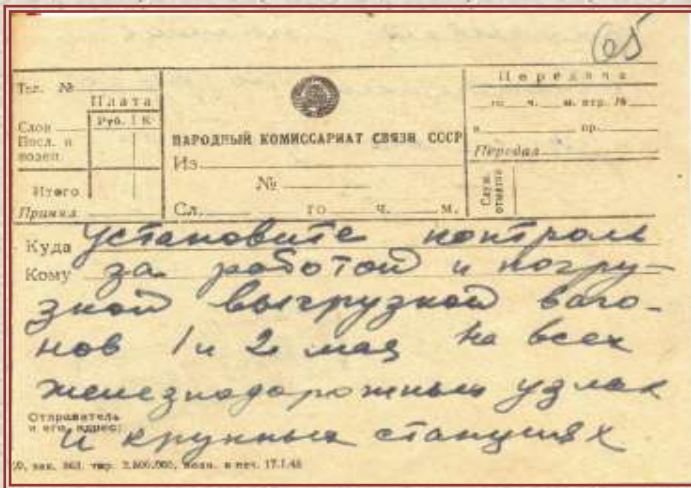 65
Тел. №
Плата
Руб. К.
Слов
Посл. и
Итого
Принял
НАРОДНЫЙ КОМИССАРИАТ СВЯЗИ СССР
Из
№
Сл. го ч. м.
Передача
го ч. м. пер. №
в пр.
Передал
Служ. отметки
Куда установите контроль
Кому за работой и погру-
зкой выгрузкой ваго-
нов 1 и 2 мая на всех
железнодорожных узлах
Отправитель
и его адрес:
и крупных станциях
зак. тир. 2.500.000, подп. к печ. 17.I.45